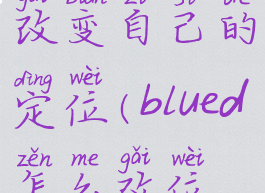 gǎi biàn zì jǐ de
改变自己的
dìng wèi
定位(blued
zěn me gǎi wèi
怎么改位